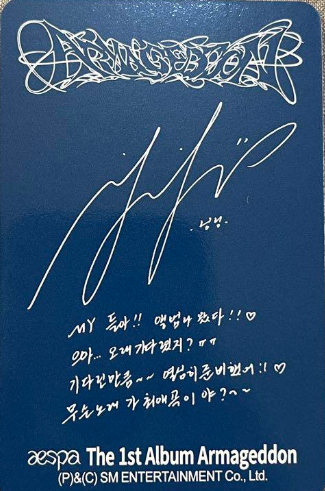 ARMAGEDDON
닝닝
MY 들아!! 앨범나왔다!!♡
으아... 오래기다렸지? ㅠㅠ
기다린만큼~~ 열심히준비했어!! ♡
무슨노래가 최애곡이야?~~
aespa The 1st Album Armageddon
(P)&(C) SM ENTERTAINMENT Co., Ltd.